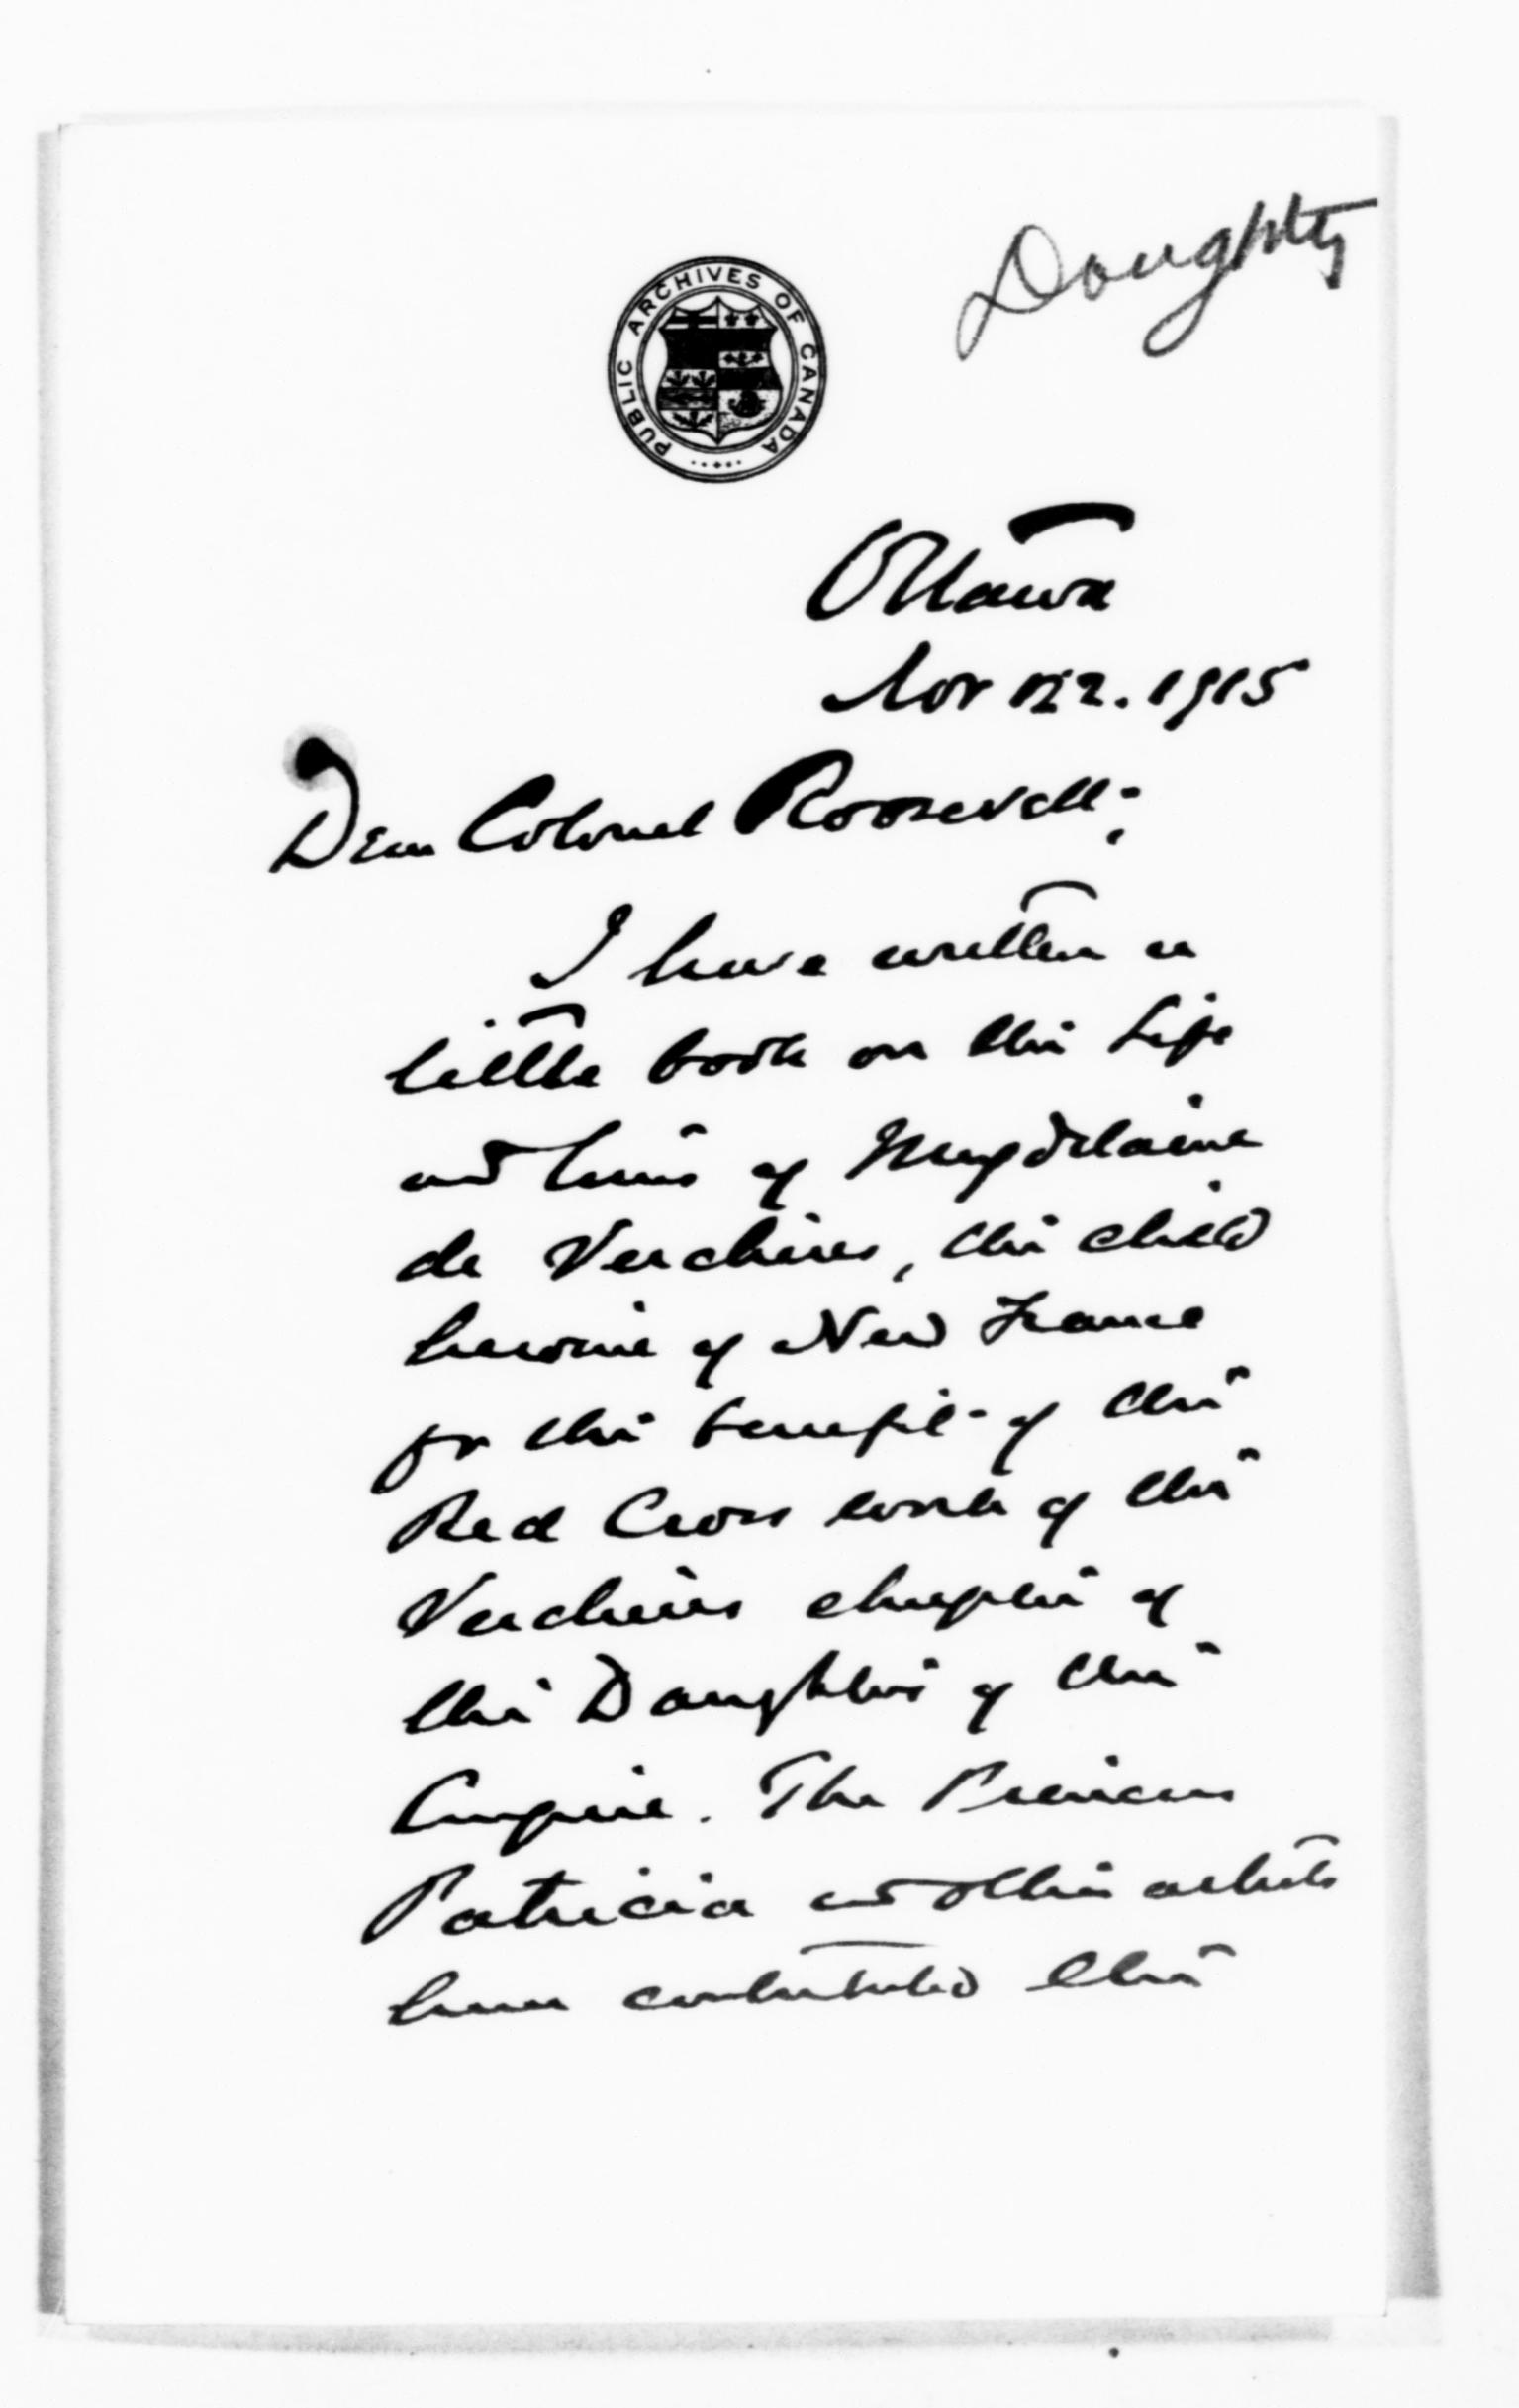 Doughty
PUBLIC ARCHIVES OF CANADA
Ottawa
Nov 22. 1915
Dear Colonel Roosevelt:
I have written a
little book on the Life
and times of Magdelaine
de Verchères, the child
heroine of New France
for the benefit of the
Red Cross work of the
Verchères chapter of
the Daughters of the
Empire. The Princess
Patricia and other artists
have contributed the